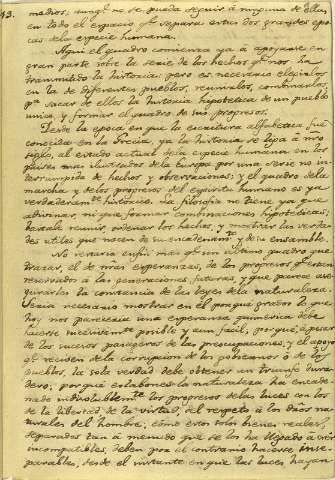 13.
medios, aunq.e no se pueda seguir á ninguno de ellos
en todo el espacio q.e separa estas dos grandes epo-
cas de la especie humana.
Aqui el quadro comienza ya á apoyarse en
gran parte sobre la serie de los hechos q.e nos ha
transmitido la historia: pero es necesario elegirlos
en la de diferentes pueblos, reunirlos, combinarlos,
p.a sacar de ellos la historia hipotetica de un pueblo
unico, y formar el quadro de sus progresos.
Desde la epoca en que la escritura alfabetica fué
conocida en la Grecia, ya la historia se liga á nro
siglo, al estado actual de la especie humana en los
paises mas ilustrados de la Europa por una serie no in-
terrumpida de hechos y observaciones; y el quadro de la
marcha y de los progresos del espiritu humano es ya
verdaderam.te historico. La filosofia no tiene ya que
adivinar, ni que formar combinaciones hipoteticas;
basta le reunir, ordenar los hechos, y mostrar las verda-
des utiles que nacen de su encadenam.to y de su ensamble.
No restaria enfin mas q.e un ultimo quadro que
trazar, el de nras esperanzas, de los progresos q.e estan
reservados á las generaciones futuras, y que parece ase-
gurarles la constancia de las leyes de la naturaleza.
Seria necesario mostrar en él porqué grados lo que
hoy nos pareceria una esperanza quimerica debe
hacerse sucesivam.te posible y aun facil; porqué, á pesar
de los sucesos pasageros de las preocupaciones, y el apoyo
q.e reciben de la corrupcion de los gobiernos ó de los
pueblos, la sola verdad debe obtener un triunfo dura-
dero; porqué eslabones la naturaleza ha encade-
nado indisolublem.te los progresos de las luces con los
de la libertad, de la virtud, del respeto á los dros na-
turales del hombre; cómo estos solos bienes reales,
separados tan á menudo que se los ha llegado á creer
incompatibles, deben por el contrario hacerse inse-
parables, desde el instante en que las luces hayan